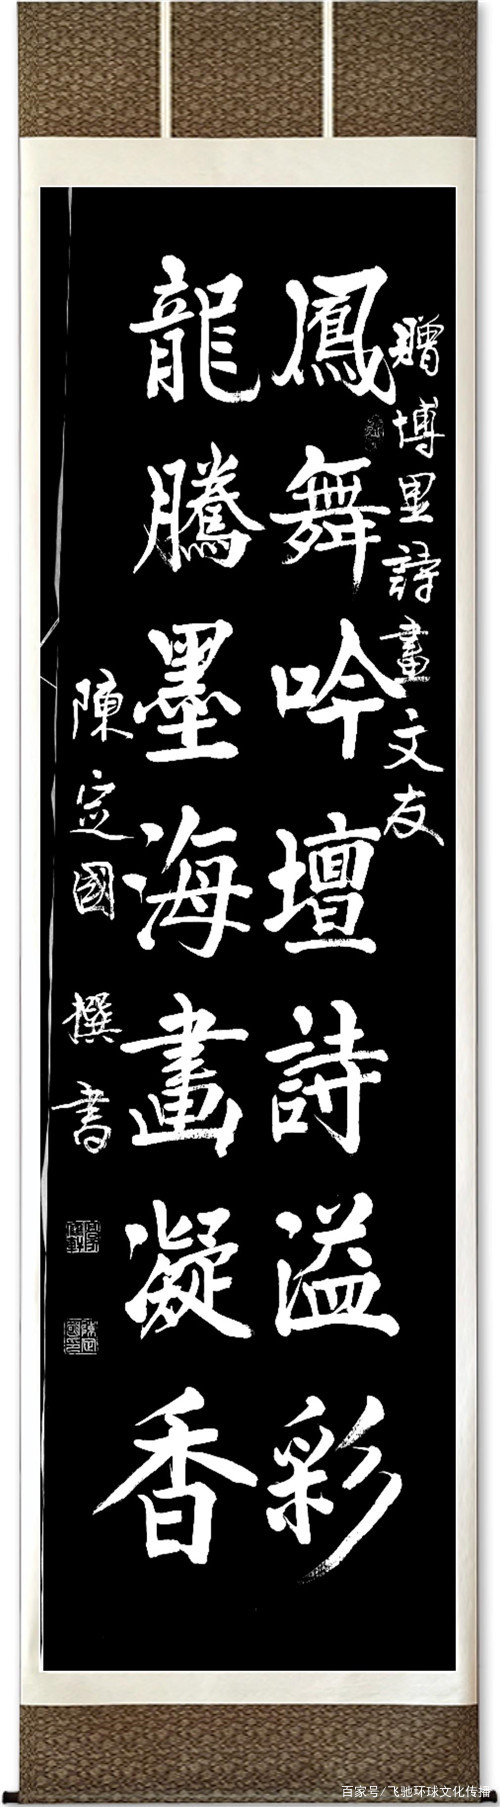 贈博里詩畫文友
鳳舞吟壇詩溢彩
龍騰墨海畫凝香
陳定國 撰書
百家号/飞驰环球文化传播